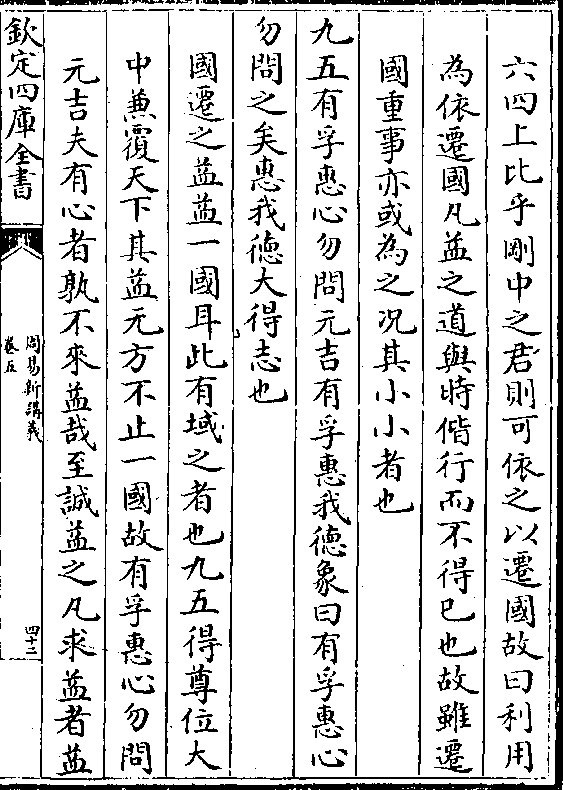 六四上比乎剛中之君則可依之以遷國故曰利用
為依遷國凡益之道與時偕行而不得已也故雖遷
國重事亦或為之况其小小者也
九五有孚惠心勿問元吉有孚惠我德象曰有孚惠心
勿問之矣惠我德大得志也
國遷之益益一國耳此有域之者也九五得尊位大
中兼覆天下其益无方不止一國故有孚惠心勿問
元吉夫有心者孰不來益哉至誠益之凡求益者益
欽定四庫全書
周易新講義
卷五
四十二